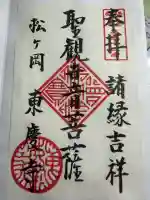 奉拝
請縁吉祥
聖觀世音菩薩
松ヶ岡
東慶寺